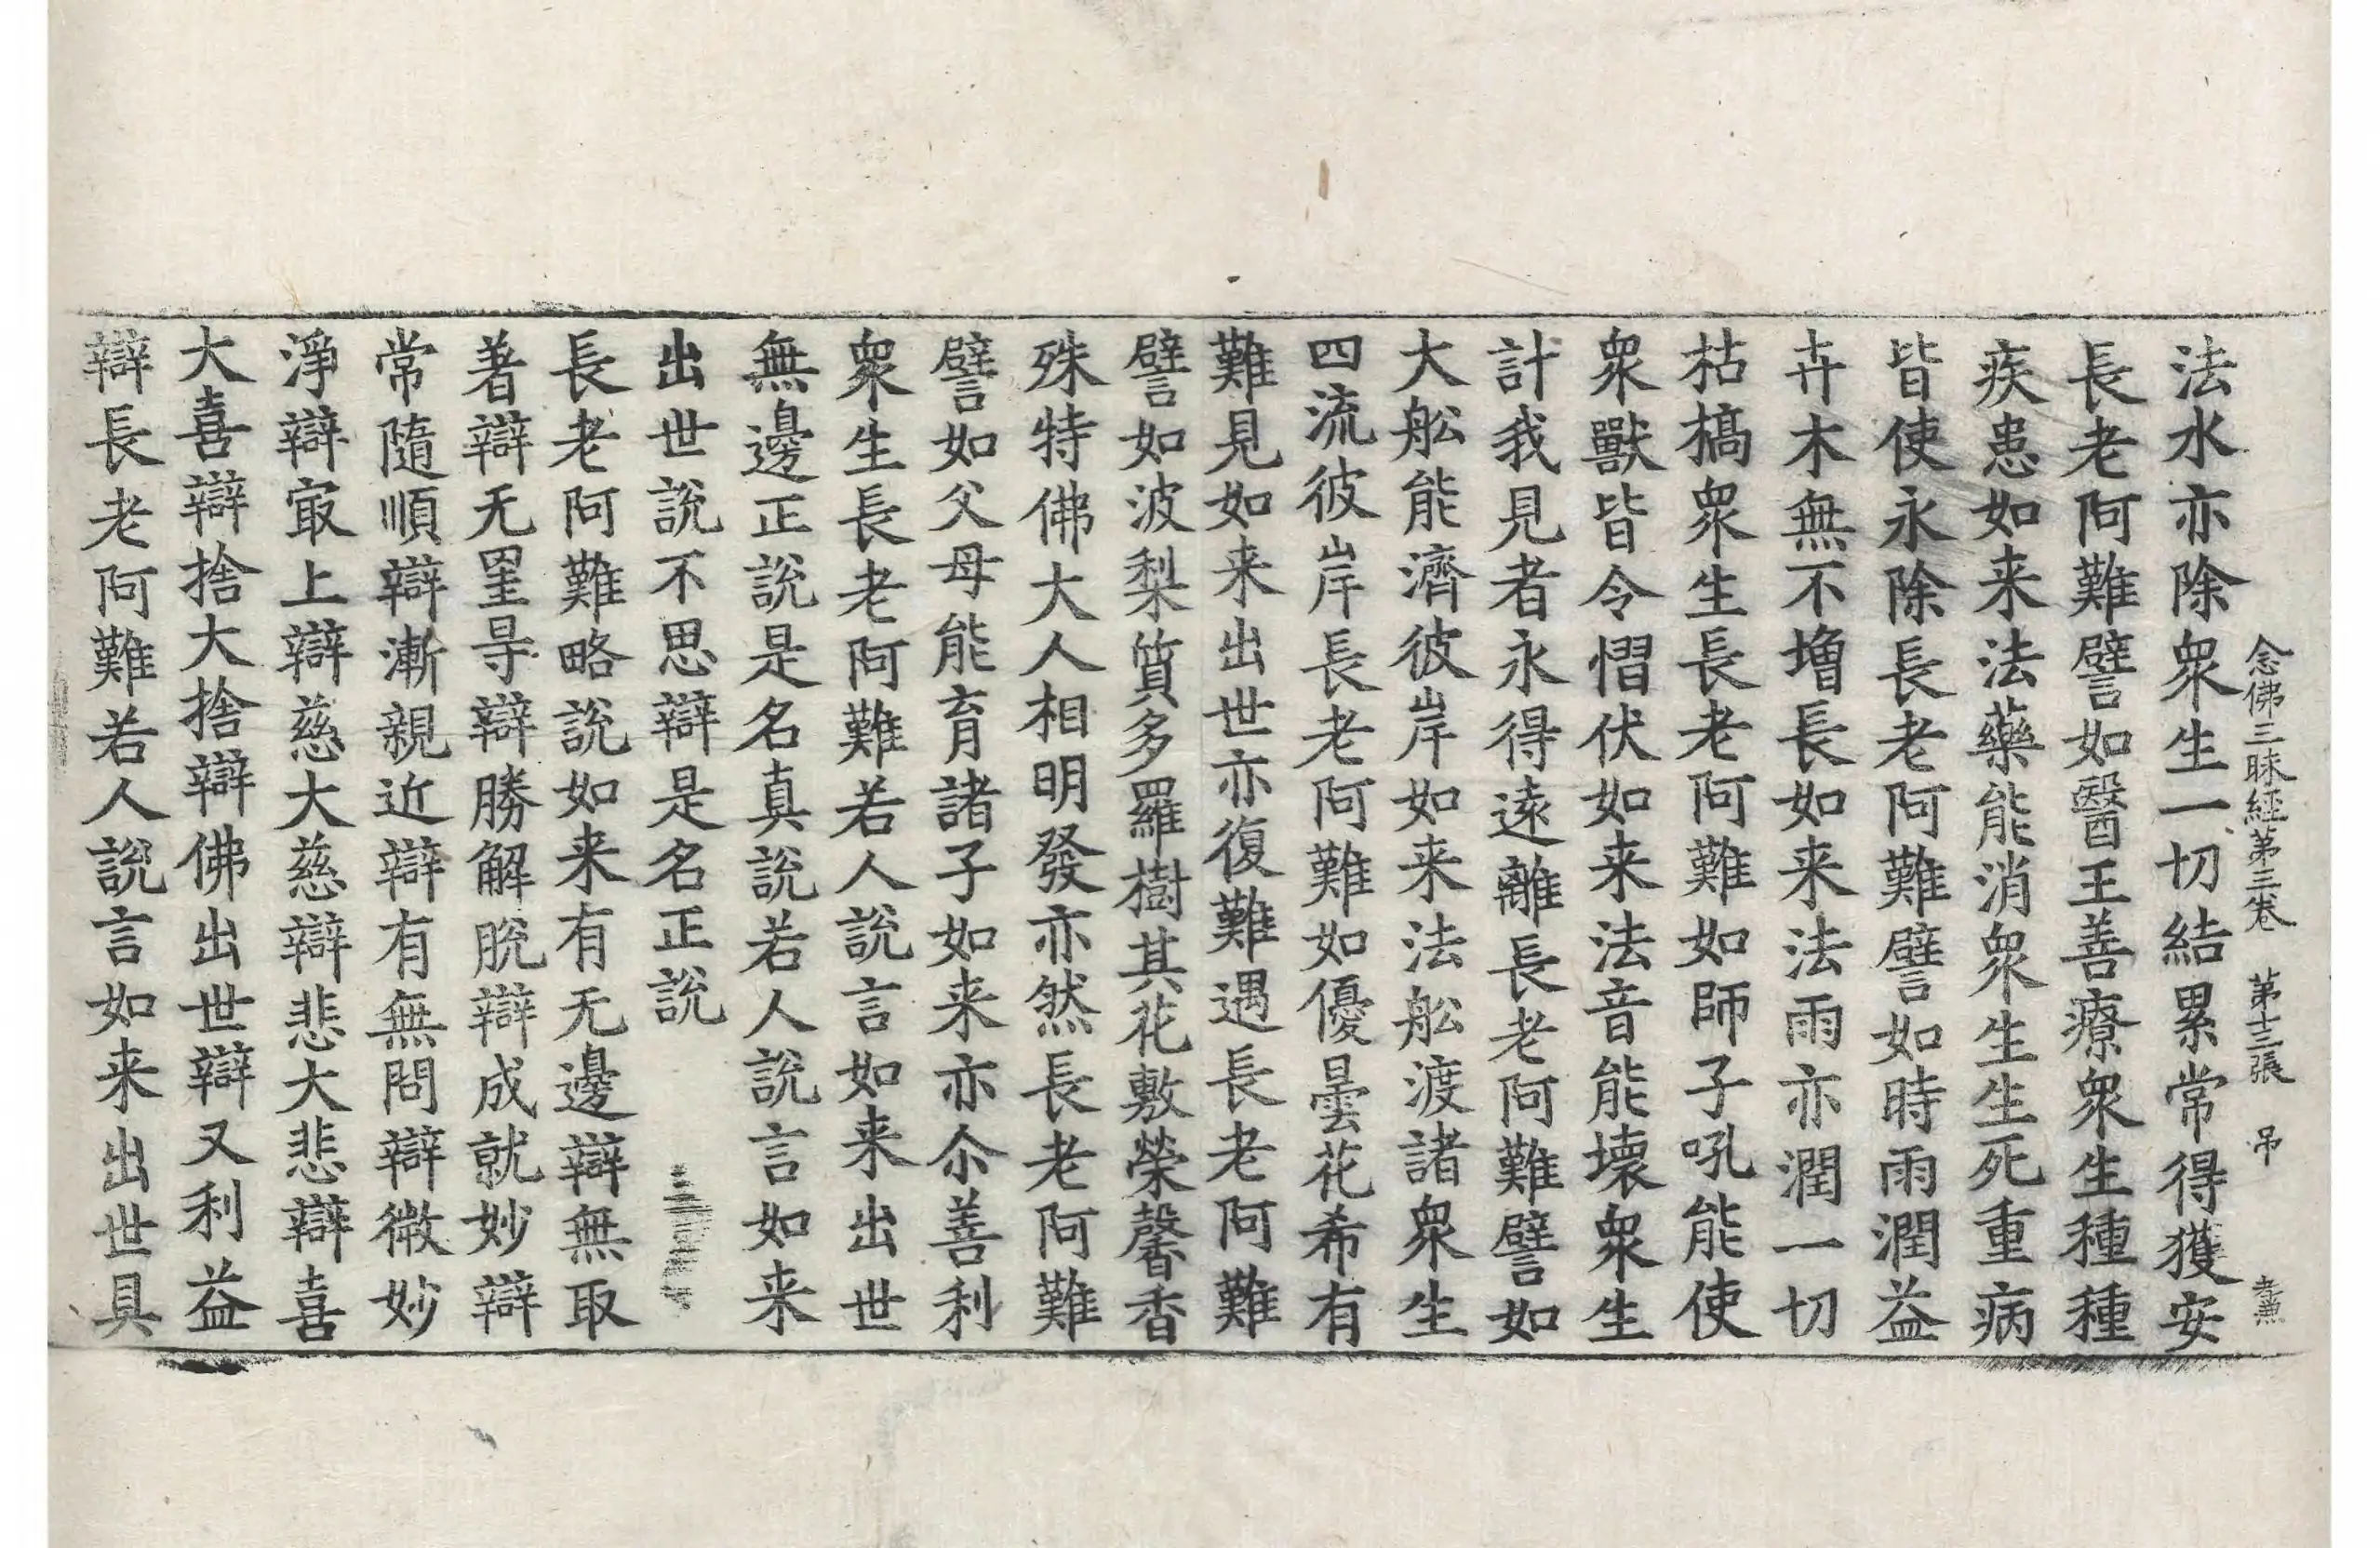 念佛三昧經第三卷 第十三張 吊
法水亦除衆生一切結累常得獲安
長老阿難譬如醫王善療衆生種種
疾患如来法藥能消衆生生死重病
皆使永除長老阿難譬如時雨潤益
卉木無不增長如来法雨亦潤一切
枯槁衆生長老阿難如師子吼能使
衆獸皆令慴伏如来法音能壞衆生
計我見者永得遠離長老阿難譬如
大舩能濟彼岸如来法舩渡諸衆生
四流彼岸長老阿難如優曇花希有
難見如来出世亦復難遇長老阿難
譬如波梨質多羅樹其花敷榮馨香
殊特佛大人相明發亦然長老阿難
譬如父母能育諸子如来亦尒善利
衆生長老阿難若人說言如来出世
無邊正說是名真說若人說言如来
出世說不思辯是名正說
長老阿難略說如来有无邊辯無取
著辯无罣㝵辯勝解脫辯成就妙辯
常隨順辯漸親近辯有無問辯微妙
淨辯㝡上辯慈大慈辯悲大悲辯喜
大喜辯捨大捨辯佛出世辯又利益
辯長老阿難若人說言如来出世具